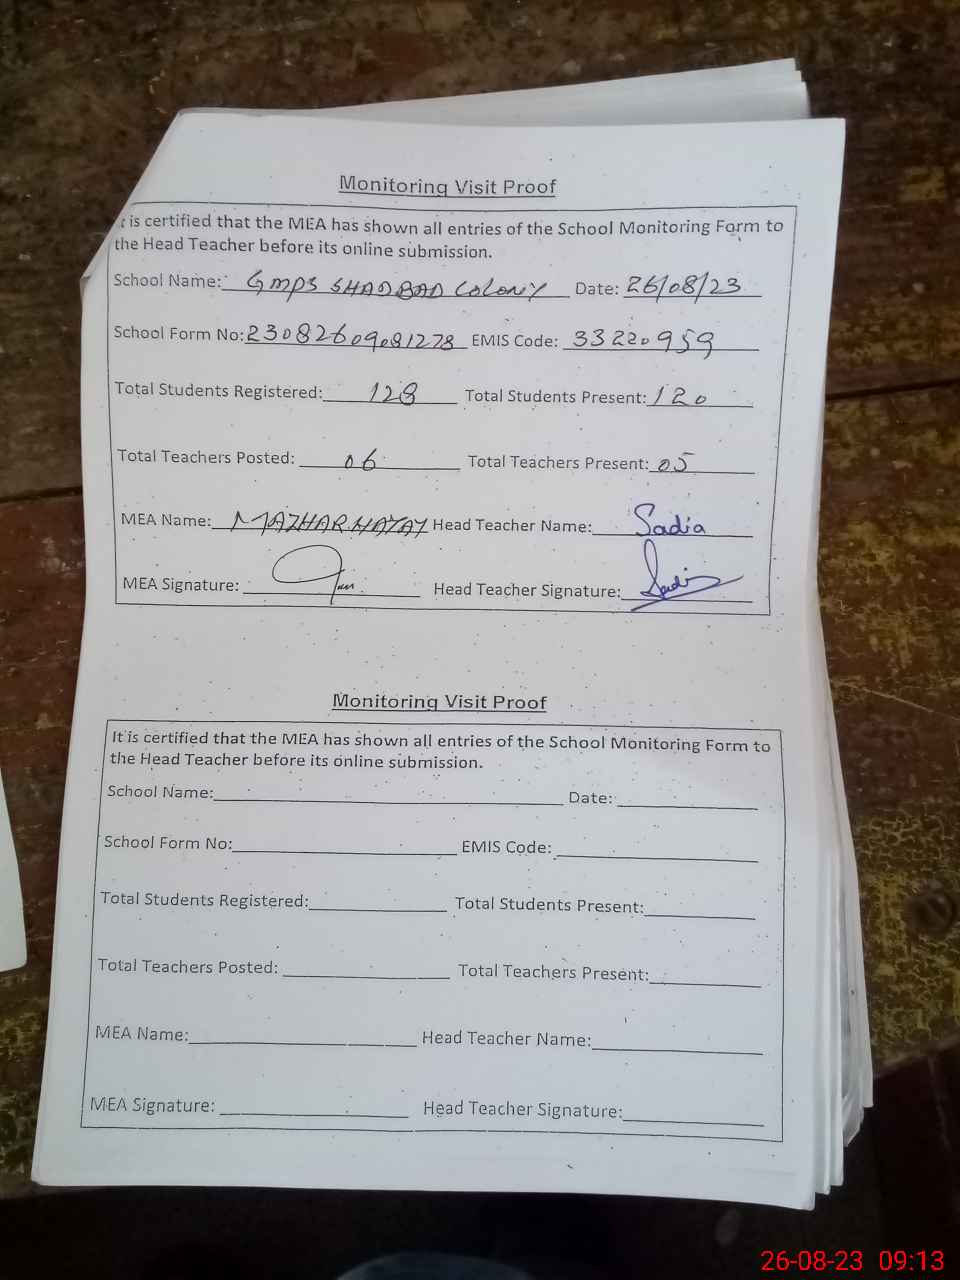 Monitoring Visit Proof
t is certified that the MEA has shown all entries of the School Monitoring Form to
the Head Teacher before its online submission.
School Name: GMPS SHADBAD COLONY Date: 26/08/23
School Form No: 23082609081278 EMIS Code: 33220959
Total Students Registered: 128 Total Students Present: 120
Total Teachers Posted: 06 Total Teachers Present: 05
MEA Name: MAZHAR HAYAT Head Teacher Name: Sadia
MEA Signature: Head Teacher Signature: Sadia
Monitoring Visit Proof
It is certified that the MEA has shown all entries of the School Monitoring Form to
the Head Teacher before its online submission.
School Name: Date:
School Form No: EMIS Code:
Total Students Registered: Total Students Present:
Total Teachers Posted: Total Teachers Present:
MEA Name: Head Teacher Name:
MEA Signature: Head Teacher Signature:
26-08-23 09:13